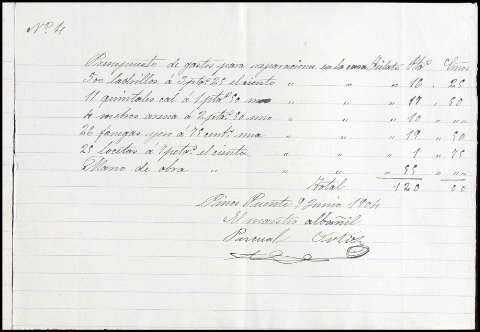 Nº 4
Presupuesto de gastos para reparaciones en la casa Ptaˢ Cénᵐᵒˢ
500 ladrillos á 3 ptaˢ 25 el ciento " " " 16 . 25
11 quintales cal á 1 ptaˢ 50 uno " " " 17 . 50
4 metros arena á 2 ptaˢ 50 uno " " " 10 " ""
26 fanegas yeso á 75 centˢ una " " " 19 . 50
25 locetas á 7 ptaˢ el ciento " " " 1 " 75
Mano de obra " " " 55 " ""
Total 120 00
Pinos Puente 9 Junio 1904
El maestro albañil
Pascual Ortiz